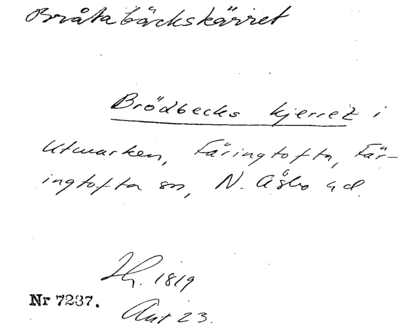 Bråtabäckskärret
Brödbecks kjerret i
Utmarken, Färingtofta, Fär-
ingtofta sn, N. Åsbo hd.
Sk. 1819
Nr 7237.
Akt 23.